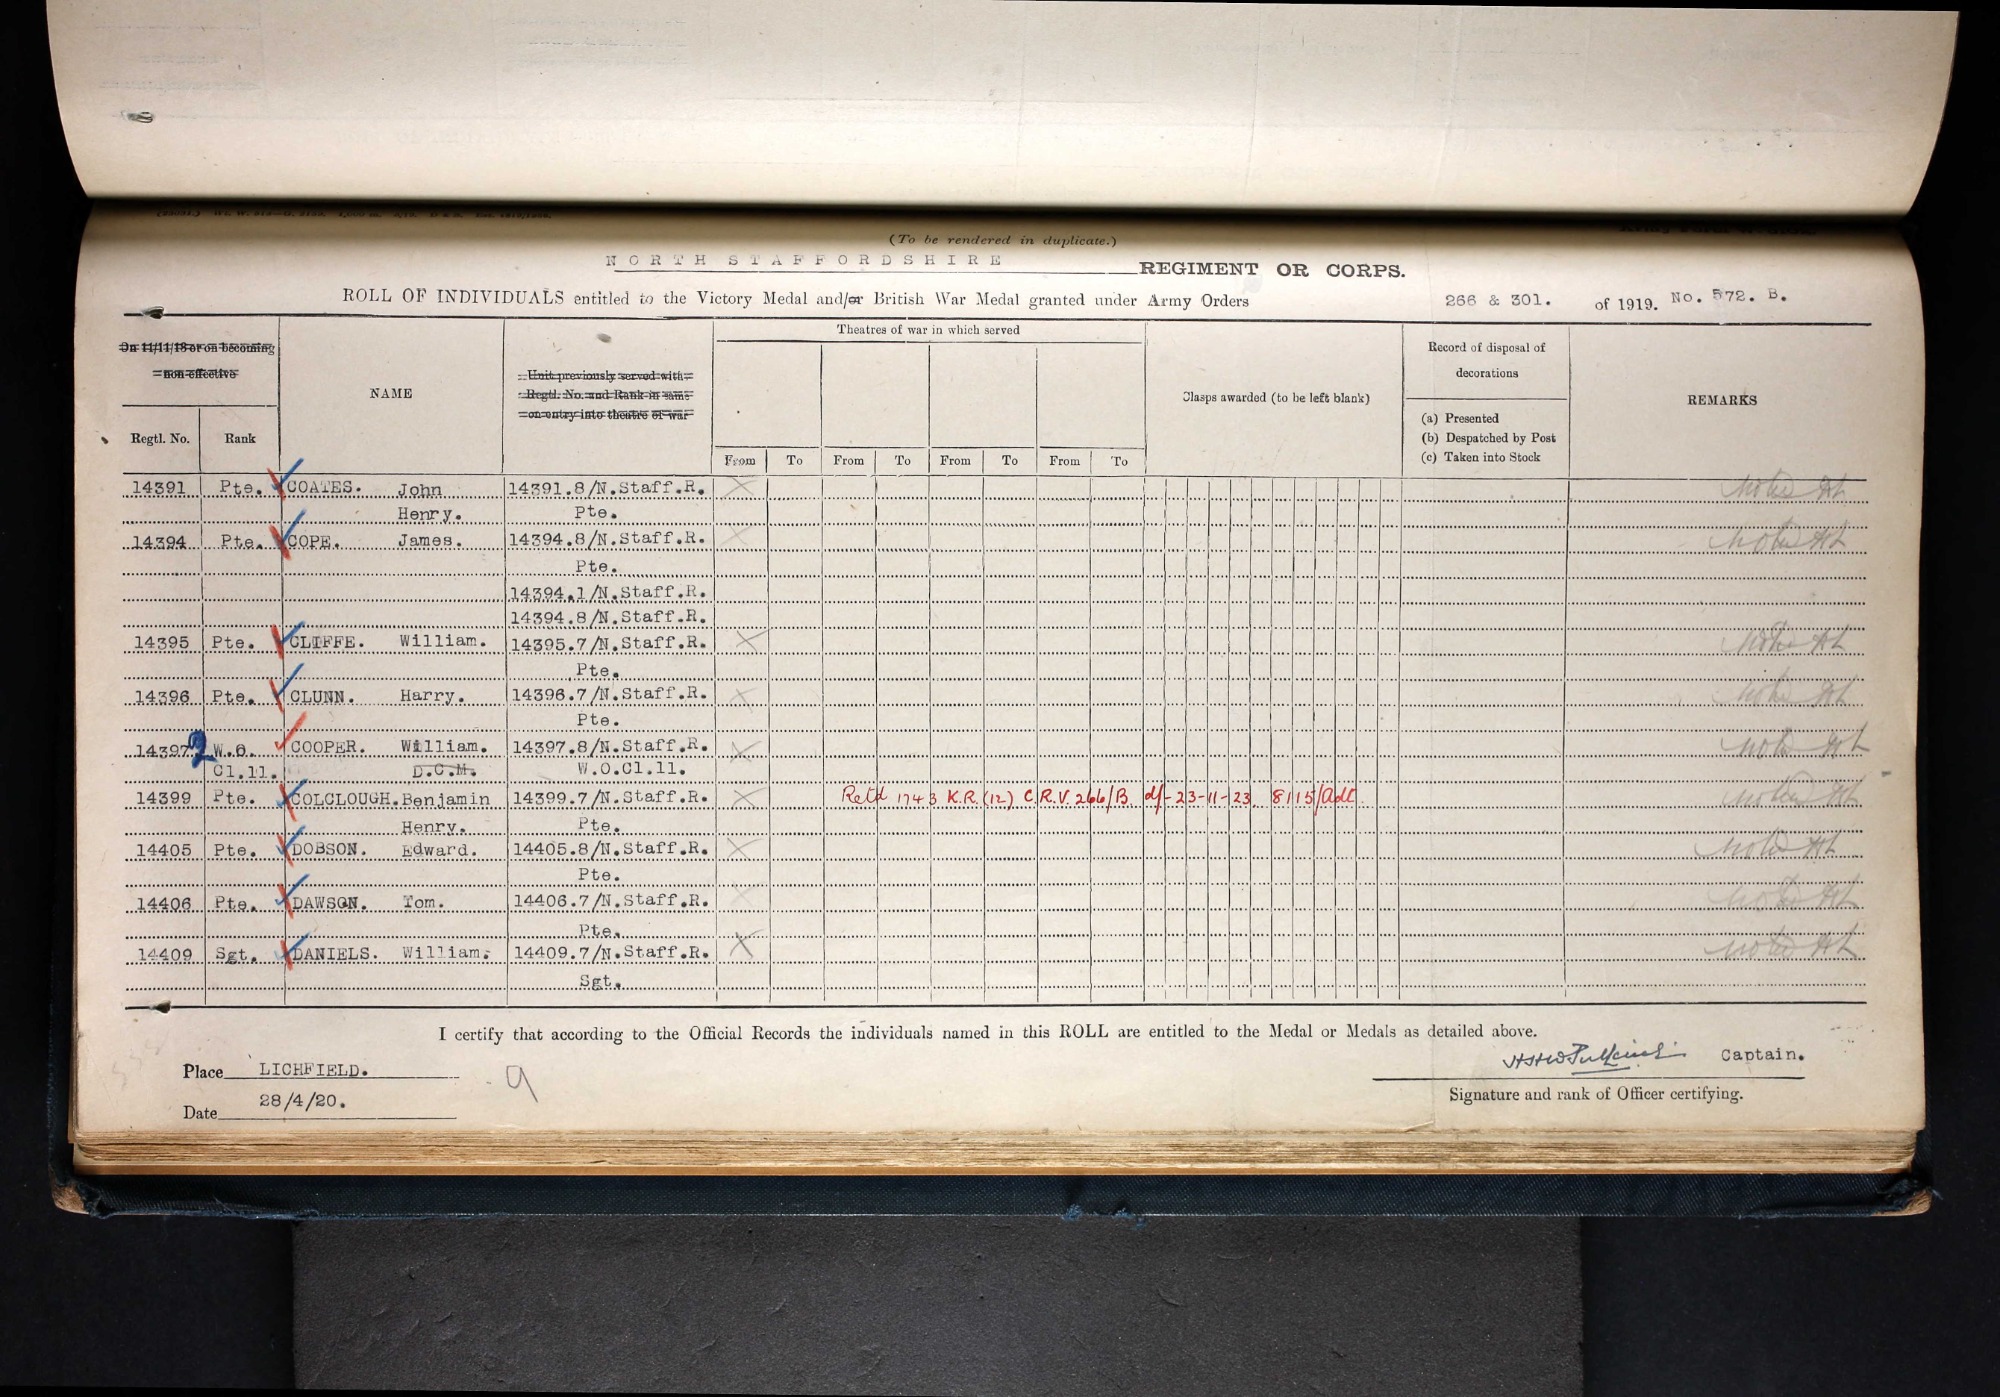 (To be rendered in duplicate.)
NORTH STAFFORDSHIRE REGIMENT OR CORPS.
ROLL OF INDIVIDUALS entitled to the Victory Medal and/or British War Medal granted under Army Orders 266 & 301. of 1919. No. 572. B.
Theatres of war in which served
On 11/11/18 or on becoming
non-effective
NAME
Unit previously served with
Regtl. No. and Rank in same
on entry into theatre of war
Clasps awarded (to be left blank)
Record of disposal of
decorations
REMARKS
(a) Presented
(b) Despatched by Post
(c) Taken into Stock
Regtl. No. Rank
From To From To From To From To
14391 Pte. COATES. John 14391.8/N.Staff.R.
Henry. Pte.
14394 Pte. COPE. James. 14394.8/N.Staff.R.
Pte.
14394.1/N.Staff.R.
14394.8/N.Staff.R.
14395 Pte. CLIFFE. William. 14395.7/N.Staff.R.
Pte.
14396 Pte. CLUNN. Harry. 14396.7/N.Staff.R.
Pte.
14397 2 W.O. COOPER. William. 14397.8/N.Staff.R.
Cl.11. D.C.M. W.O.Cl.11.
14399 Pte. COLCLOUGH. Benjamin 14399.7/N.Staff.R. Retd 1743 K.R. (12) C.R.V. 266/B. df- 23-11-23. 8115/Adt.
Henry. Pte.
14405 Pte. DOBSON. Edward. 14405.8/N.Staff.R.
Pte.
14406 Pte. DAWSON. Tom. 14406.7/N.Staff.R.
Pte.
14409 Sgt. DANIELS. William. 14409.7/N.Staff.R.
Sgt.
I certify that according to the Official Records the individuals named in this ROLL are entitled to the Medal or Medals as detailed above.
Place LICHFIELD.
9
Captain.
Date 28/4/20.
Signature and rank of Officer certifying.